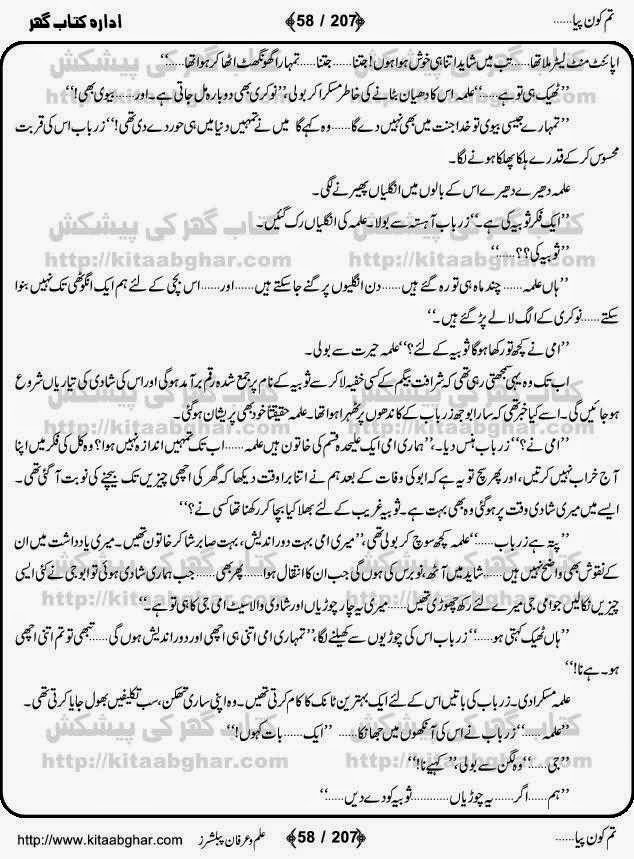 تم کون پیا......
58 / 207
ادارہ کتاب گھر
اپائنٹ منٹ لیٹر ملا تھا...... تب میں شاید اتنا ہی خوش ہوا ہوں! جتنا...... جتنا...... تمہارا گھونگھٹ اٹھا کر ہوا تھا......‘‘
’’ٹھیک ہی تو ہے......‘‘ علمہ اس کا دھیان ہٹانے کی خاطر مسکرا کر بولی، ’’نوکری بھی دوبارہ مل جاتی ہے۔ اور...... بیوی بھی!‘‘
’’تمہارے جیسی بیوی تو خدا جنت میں بھی نہیں دے گا...... وہ کہے گا میں نے تمہیں دنیا میں ہی حور دے دی تھی!‘‘ زرباب اس کی قربت
محسوس کر کے قدرے ہلکا پھلکا ہونے لگا۔
علمہ دھیرے دھیرے اس کے بالوں میں انگلیاں پھیرنے لگی۔
’’ایک فکر ثوبیہ کی ہے۔‘‘ زرباب آہستہ سے بولا۔ علمہ کی انگلیاں رک گئیں۔
’’ثوبیہ کی؟؟......‘‘
’’ہاں علمہ...... چند ماہ ہی تو رہ گئے ہیں...... دن انگلیوں پر گنے جا سکتے ہیں...... اور...... اس بچی کے لئے ہم ایک انگوٹھی تک نہیں بنوا
سکتے...... نوکری کے الگ لالے پڑ گئے ہیں۔‘‘
’’امی نے کچھ تو رکھا ہو گا ثوبیہ کے لئے؟‘‘ علمہ حیرت سے بولی۔
اب تک وہ یہی سمجھتی رہی تھی کہ شرافت بیگم کے کسی خفیہ لاکر سے ثوبیہ کے نام پر جمع شدہ رقم برآمد ہو گی اور اس کی شادی کی تیاریاں شروع
ہو جائیں گی۔ اسے کیا خبر تھی کہ سارا بوجھ زرباب کے کاندھوں پر ٹھہرا ہوا تھا۔ علمہ حقیقتاً خود بھی پریشان ہو گئی۔
’’امی نے؟‘‘ زرباب ہنس دیا۔، ’’ہماری امی ایک علیحدہ قسم کی خاتون ہیں علمہ...... اب تک تمہیں اندازہ نہیں ہوا؟ وہ کل کی فکر میں اپنا
آج خراب نہیں کرتیں، اور پھر سچ تو یہ ہے کہ ابو کی وفات کے بعد ہم نے اتنا برا وقت دیکھا کہ گھر کی اچھی چیزیں تک بیچنے کی نوبت آ گئی تھی۔
ایسے میں میری شادی وقت پر ہو گئی وہ بھی بہت ہے۔ ثوبیہ غریب کے لئے بھلا کیا بچا کر رکھنا تھا کسی نے؟‘‘
’’پتہ ہے زرباب......‘‘ علمہ کچھ سوچ کر بولی تھی، ’’میری امی بہت دور اندیش، بہت صابر شاکر خاتون تھیں۔ میری یادداشت میں ان
کے نقوش بھی واضح نہیں ہیں...... شاید میں آٹھ، نو برس کی ہوں گی جب ان کا انتقال ہوا...... پھر بھی...... جب ہماری شادی ہوئی تو ابو جی نے کئی ایسی
چیزیں نکالیں جو امی جی میرے لئے رکھ چھوڑی تھیں...... میری یہ چار چوڑیاں اور شادی والا سیٹ امی جی کا ہی تو ہے۔‘‘
’’ہاں ٹھیک کہتی ہو......‘‘ زرباب اس کی چوڑیوں سے کھیلنے لگا، ’’تمہاری امی اتنی ہی اچھی اور دور اندیش ہوں گی...... تبھی تو تم اتنی اچھی
ہو۔ ہے نا!‘‘
علمہ مسکرا دی۔ زرباب کی باتیں اس کے لئے ایک بہترین ٹانک کا کام کرتی تھیں۔ وہ اپنی ساری تھکن، سب تکلیفیں بھول جایا کرتی تھی۔
’’علمہ......‘‘ زرباب نے اس کی آنکھوں میں جھانکا...... ’’ایک...... بات کہوں!‘‘
’’جی......‘‘ وہ لگن سے بولی، ’’کہیے نا!‘‘
’’ہم...... اگر...... یہ چوڑیاں............ ثوبیہ کو دے دیں......‘‘
کتاب گھر کی پیشکش
http://kitaabghar.com
تم کون پیا......
58 / 207
علم و عرفان پبلشرز
http://www.kitaabghar.com